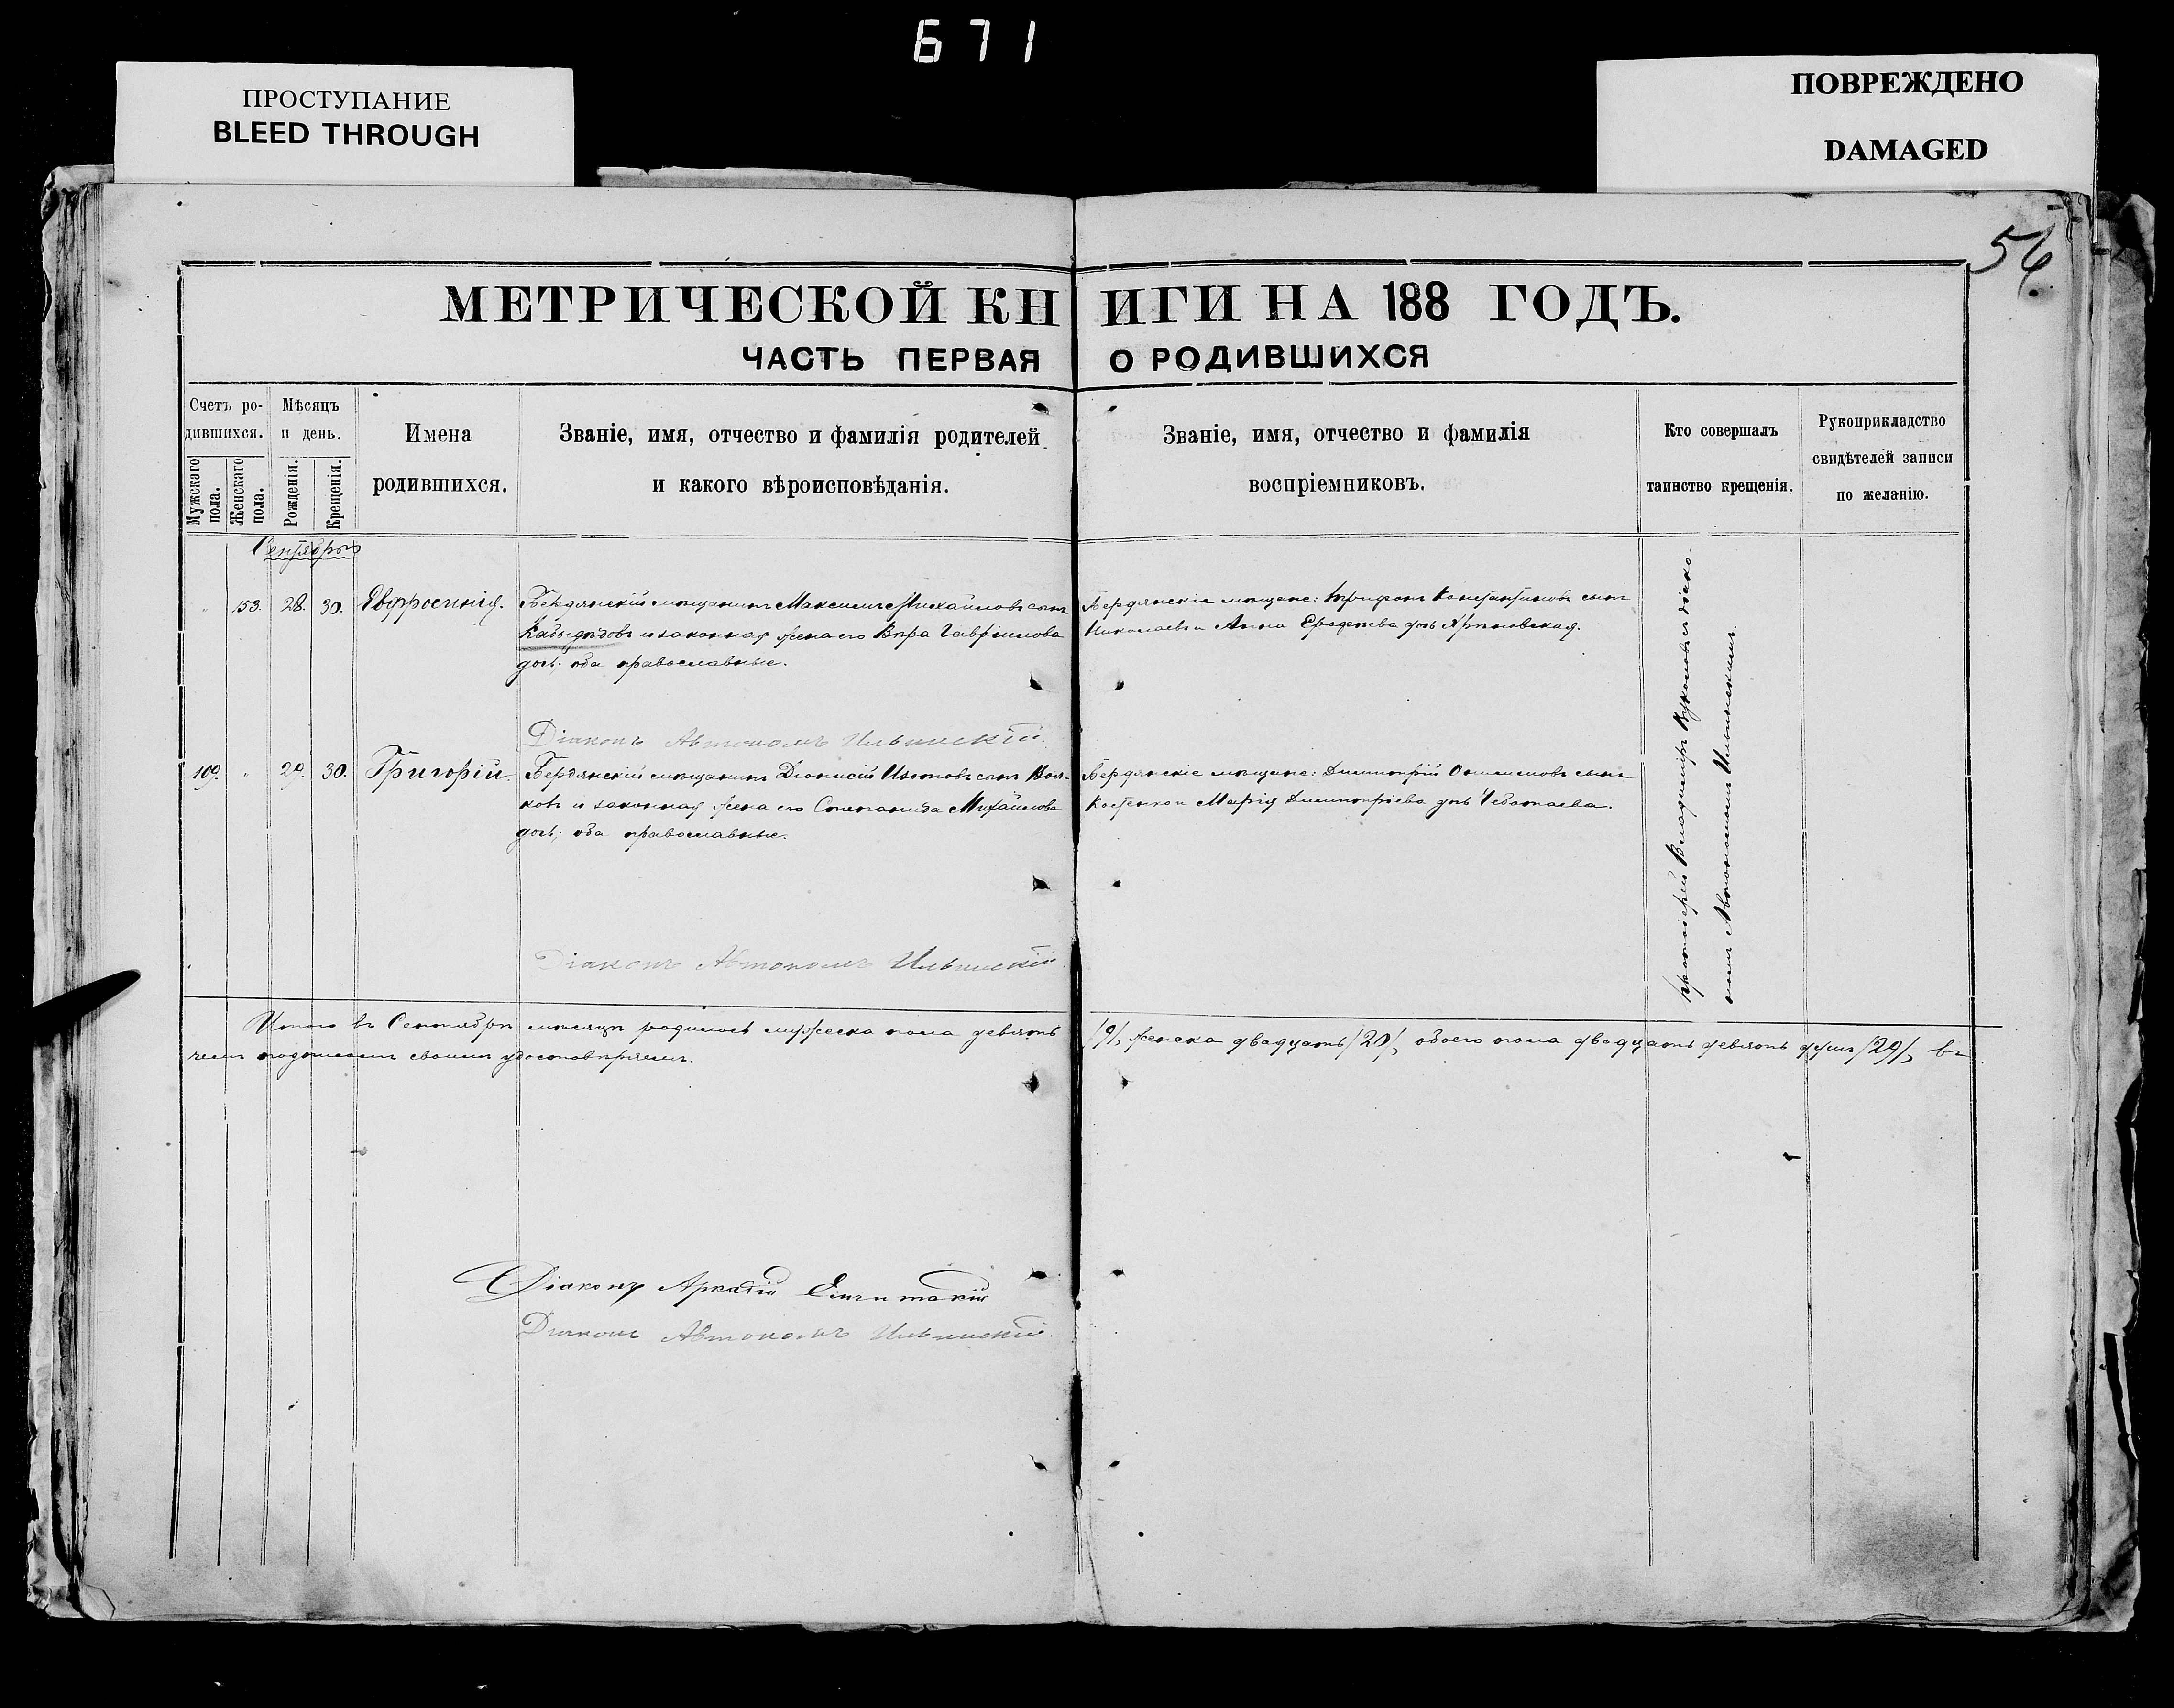 671
ПРОСТУПАНИЕ
BLEED THROUGH
ПОВРЕЖДЕНО
DAMAGED
56
МЕТРИЧЕСКОЙ КНИГИ НА 188 ГОДЪ.
ЧАСТЬ ПЕРВАЯ О РОДИВШИХСЯ
Счетъ ро-
дившихся.
Мужскаго пола.
Женскаго пола.
Мѣсяцъ
и день.
Рожденія.
Крещенія.
Имена
родившихся.
Званіе, имя, отчество и фамилія родителей
и какого вѣроисповѣданія.
Званіе, имя, отчество и фамилія
воспріемниковъ.
Кто совершалъ
таинство крещенія.
Рукоприкладство
свидѣтелей записи
по желанію.
Сентябрь
" 153. 28. 30. Евфросинія.
Бердянскій мѣщанинъ Максимъ Михайловъ сынъ
и законная жена его Вѣра Гавріилова
дочь; оба православные.
Бердянскіе мѣщане: Трифонъ Константиновъ сынъ
Николаевъ и Анна Ерофеева дочь
Діаконъ Автономъ Ильинскій.
109. " 29. 30. Григорій.
Бердянскій мѣщанинъ Діонисій Изотовъ сынъ Вол-
ковъ и законная жена его Степанида Михайлова
дочь; оба православные.
Бердянскіе мѣщане: Димитрій сынъ
Костенко и Марія Димитріева дочь Чеботаева.
Діаконъ Автономъ Ильинскій.
Протоіерей Владиміръ съ діако-
номъ Автономомъ Ильинскимъ.
Итого въ Сентябрѣ мѣсяцѣ родилось мужеска пола девять /9/, женска двадцать /20/, обоего пола двадцать девять душъ /29/, въ
чемъ подписомъ своимъ удостовѣряемъ.
Діаконъ Аркадій
Діаконъ Автономъ Ильинскій.